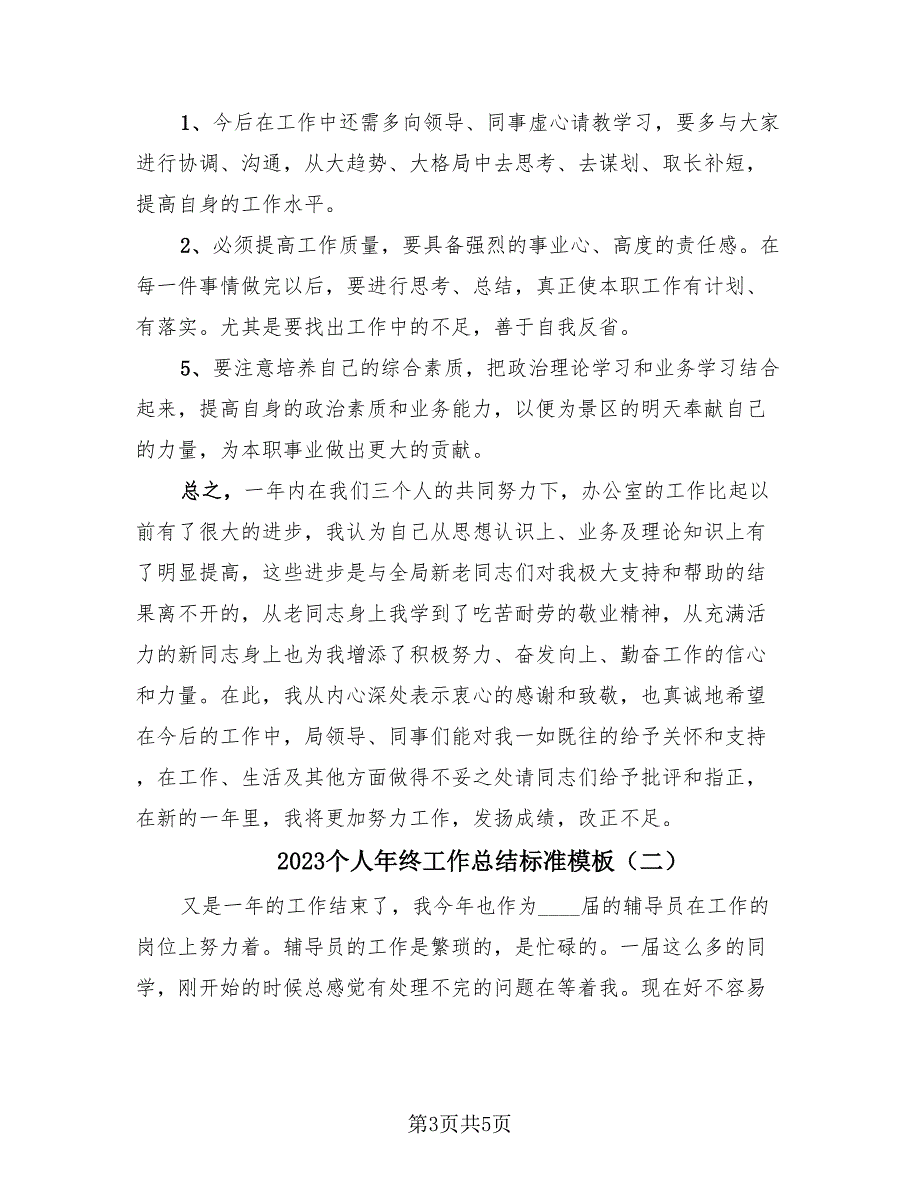 1、今后在工作中还需多向领导、同事虚心请教学习，要多与大家
进行协调、沟通，从大趋势、大格局中去思考、去谋划、取长补短，
提高自身的工作水平。
2、必须提高工作质量，要具备强烈的事业心、高度的责任感。在
每一件事情做完以后，要进行思考、总结，真正使本职工作有计划、
有落实。尤其是要找出工作中的不足，善于自我反省。
5、要注意培养自己的综合素质，把政治理论学习和业务学习结合
起来，提高自身的政治素质和业务能力，以便为景区的明天奉献自己
的力量，为本职事业做出更大的贡献。
总之，一年内在我们三个人的共同努力下，办公室的工作比起以
前有了很大的进步，我认为自己从思想认识上、业务及理论知识上有
了明显提高，这些进步是与全局新老同志们对我极大支持和帮助的结
果离不开的，从老同志身上我学到了吃苦耐劳的敬业精神，从充满活
力的新同志身上也为我增添了积极努力、奋发向上、勤奋工作的信心
和力量。在此，我从内心深处表示衷心的感谢和致敬，也真诚地希望
在今后的工作中，局领导、同事们能对我一如既往的给予关怀和支持
，在工作、生活及其他方面做得不妥之处请同志们给予批评和指正，
在新的一年里，我将更加努力工作，发扬成绩，改正不足。
2023个人年终工作总结标准模板（二）
又是一年的工作结束了，我今年也作为____届的辅导员在工作的
岗位上努力着。辅导员的工作是繁琐的，是忙碌的。一届这么多的同
学，刚开始的时候总感觉有处理不完的问题在等着我。现在好不容易
第3页共5页